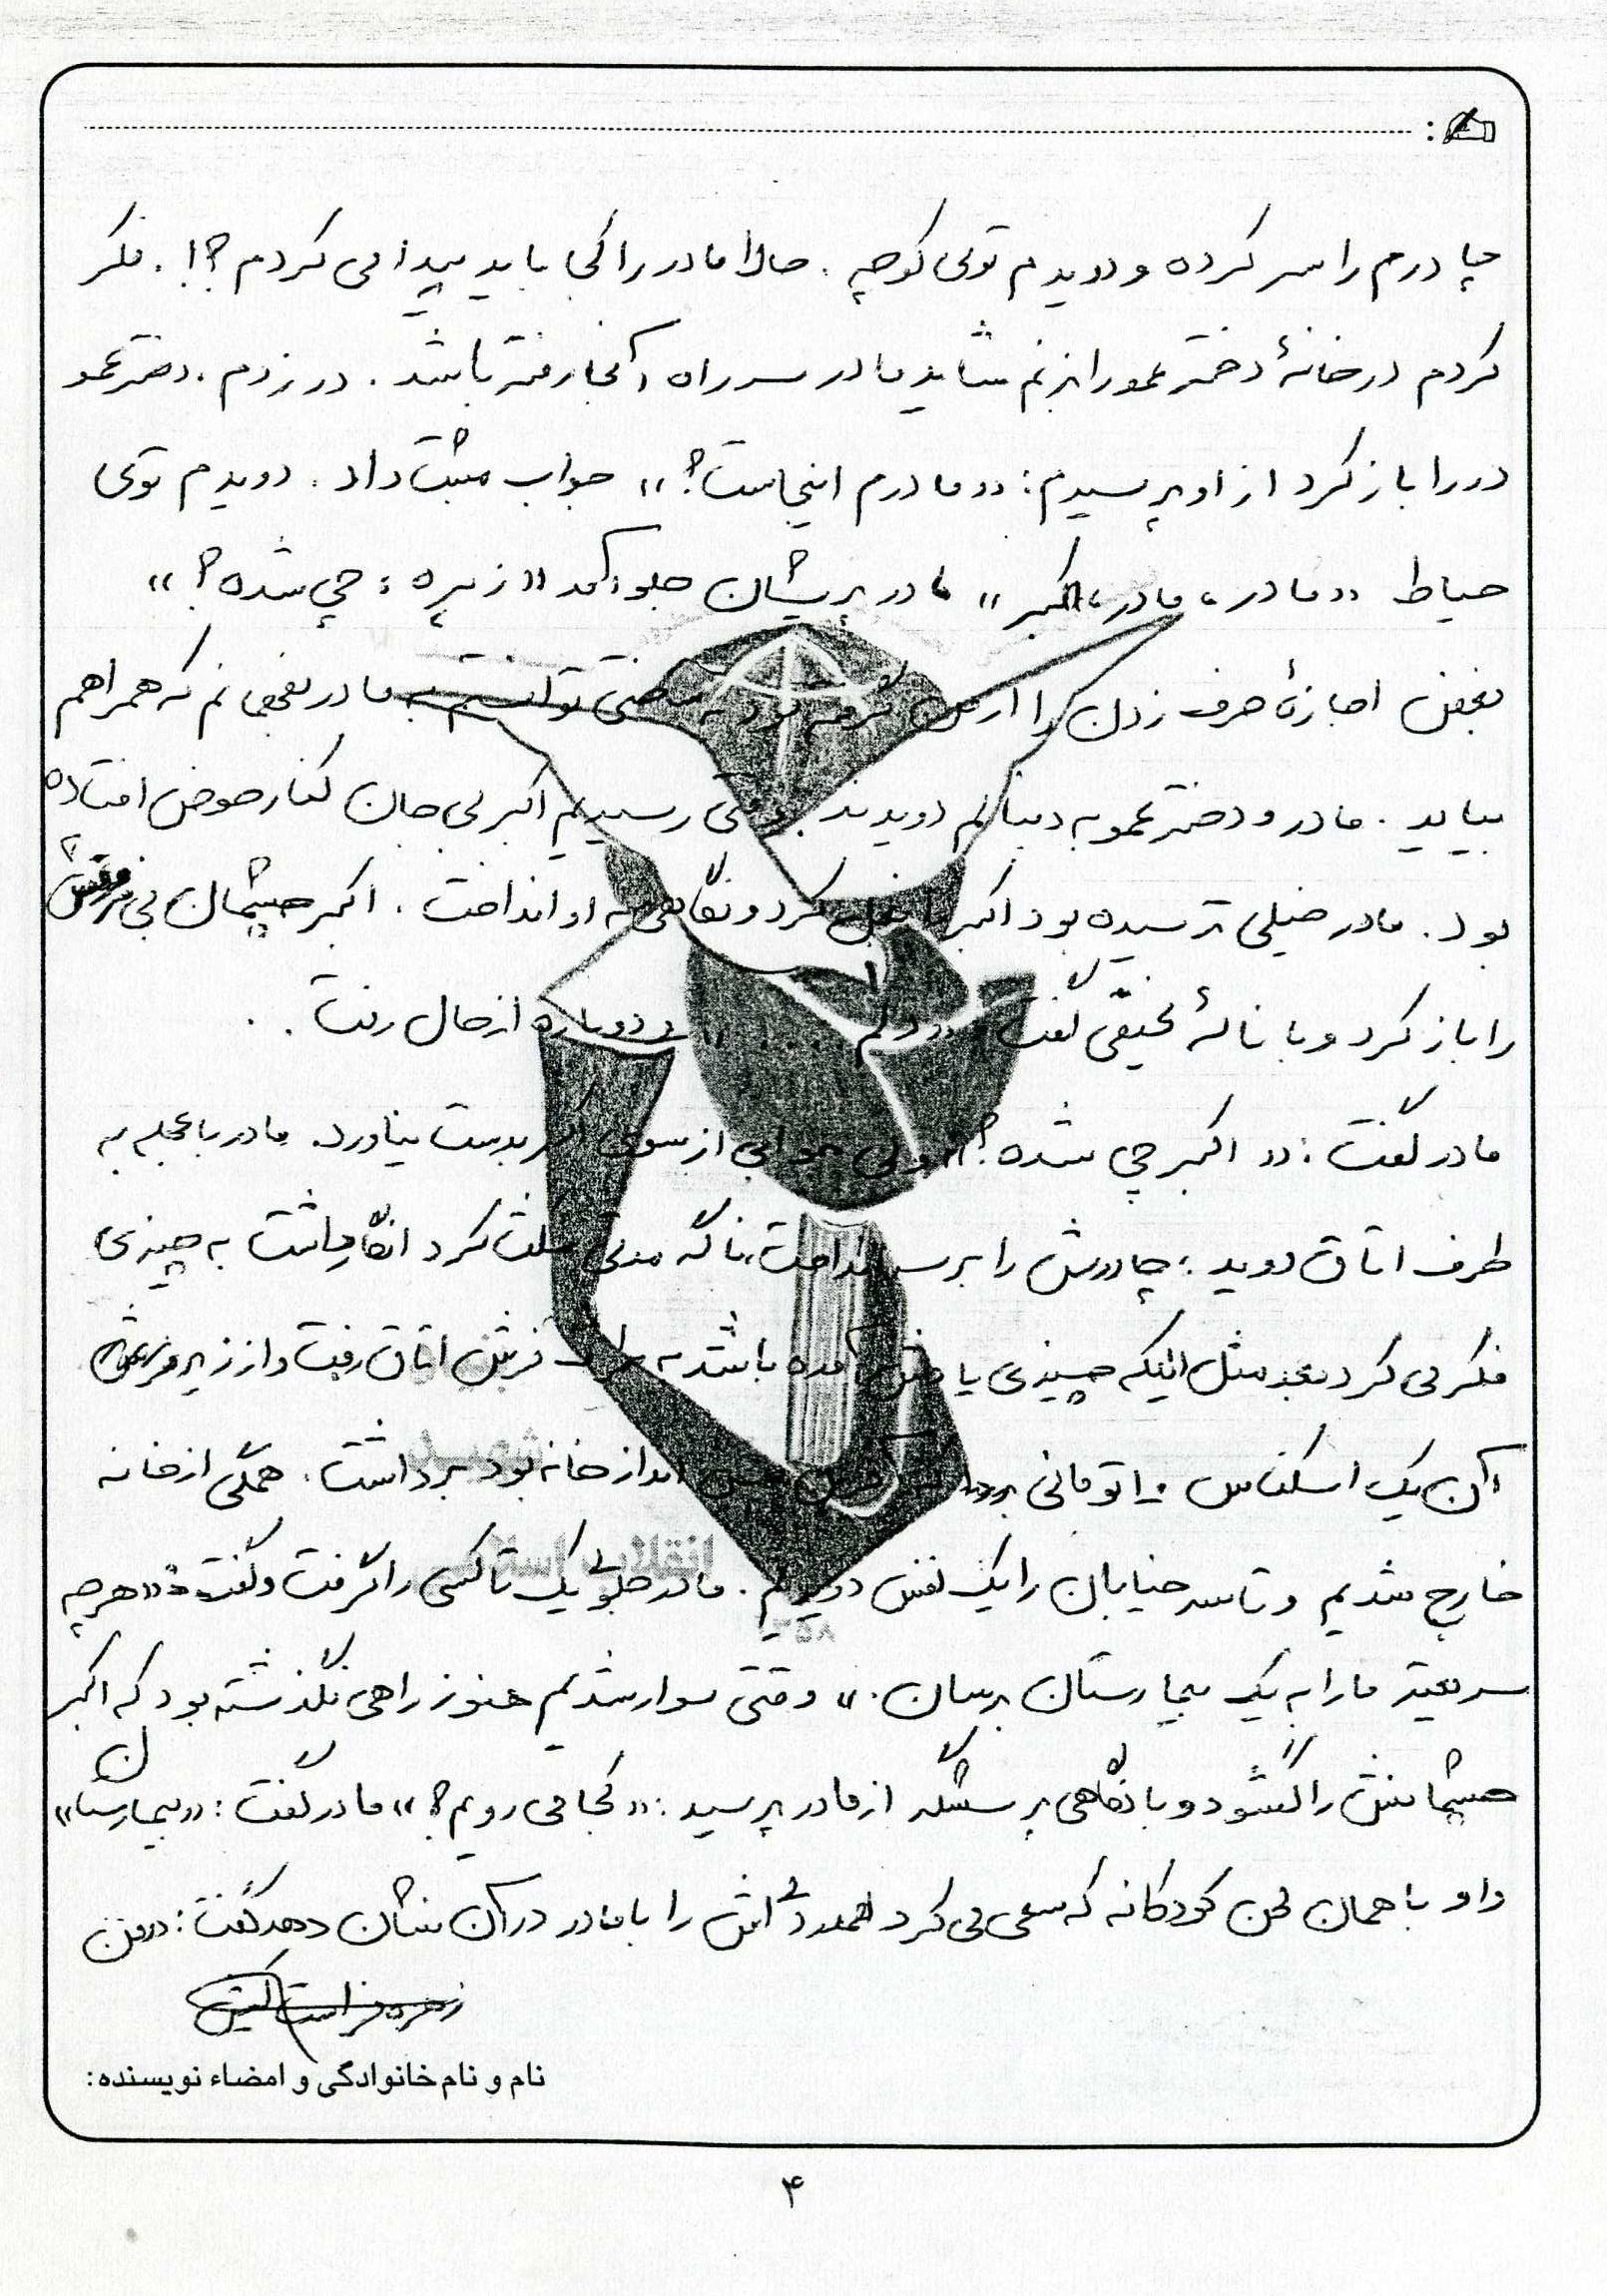 چادرم را سر کرده و دویدم توی کوچه . حالا مادر را کجا باید پیدا می کردم ؟! . فکر
کردم در خانهٔ دختر عمو را بزنم شاید مادر سر راه آنجا رفته باشد . در زدم . دختر عمو
در را باز کرد از او پرسیدم : «مادرم اینجاست؟» جواب مثبت داد . دویدم توی
حیاط «مادر ، مادر ، اکبر» مادر پریشان جلو آمد «زهره ؛ چی شده؟»
بغض اجازهٔ حرف زدن را از من گرفته بود نه حتی توانستم به مادر بفهمانم که همراهم
بیاید . مادر و دختر عمو به دنبالم دویدند . وقتی رسیدیم اکبر بی جان کنار حوض افتاده
بود . مادر خیلی ترسیده بود اکبر را بغل کرد و نگاهی به او انداخت . اکبر چشمان بی
را باز کرد و با نالهٔ خفیفی گفت «دلم ....» و دوباره از حال رفت . .
مادر گفت : «اکبر چی شده؟» ولی جوابی از سوی اکبر بدست نیاورد . مادر با عجله به
طرف اتاق دوید ؛ چادرش را بر سر انداخت ، ناگه مدتی مکث کرد انگار داشت به چیزی
فکر می کرد بعد مثل اینکه چیزی یادش آمده باشد به طرف فرش اتاق رفت و از زیر فرش
آن یک اسکناس ۱۰ تومانی انداز خانه بود برداشت . همگی از خانه
خارج شدیم و تا سر خیابان را یک نفس دویدیم . مادر جلوی یک تاکسی را گرفت و گفت : «هر چه
سریعتر ما را به یک بیمارستان برسان .» وقتی سوار شدیم هنوز راهی نگذشته بود که اکبر
چشمانش را گشود و با نگاهی پرسشگر از مادر پرسید : «کجا می رویم؟» مادر گفت : «بیمارستان»
و او با همان لحن کودکانه که سعی می کرد همدردی اش را با مادر در آن نشان دهد گفت : «من
زهره فراست کیش
نام و نام خانوادگی و امضاء نویسنده:
۴